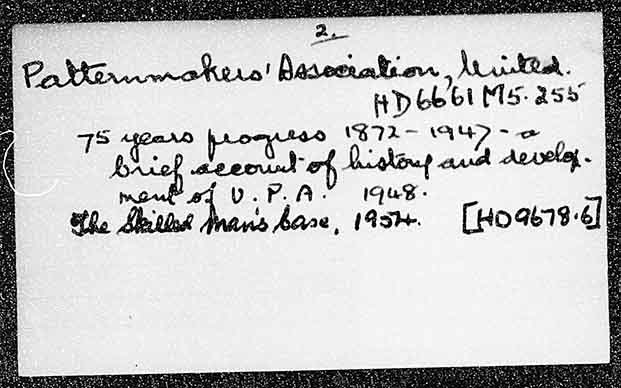 2.
Patternmakers' Association, United.
HD6661 M5.255
75 years progress 1872-1947 - a
brief account of history and develop-
ment of U.P.A. 1948.
The Skilled Man's Case, 1954. [HD9678.6]